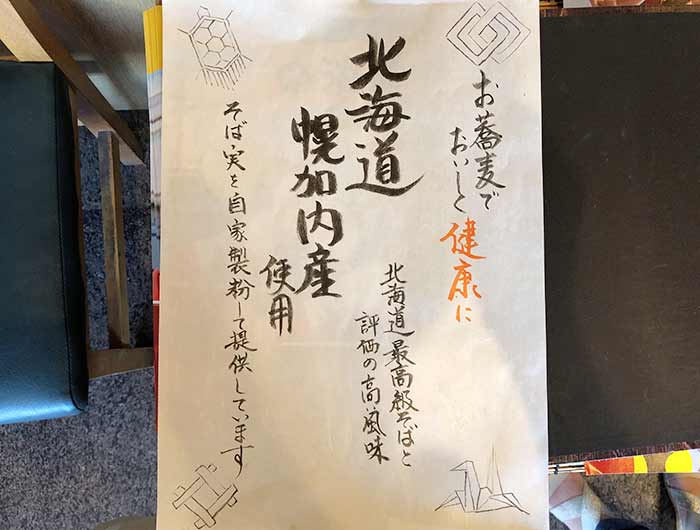 お蕎麦で
おいしく
健康に
北海道最高級そばと
評価の高風味
北海道
幌加内産
使用
そば実を自家製粉して提供しています